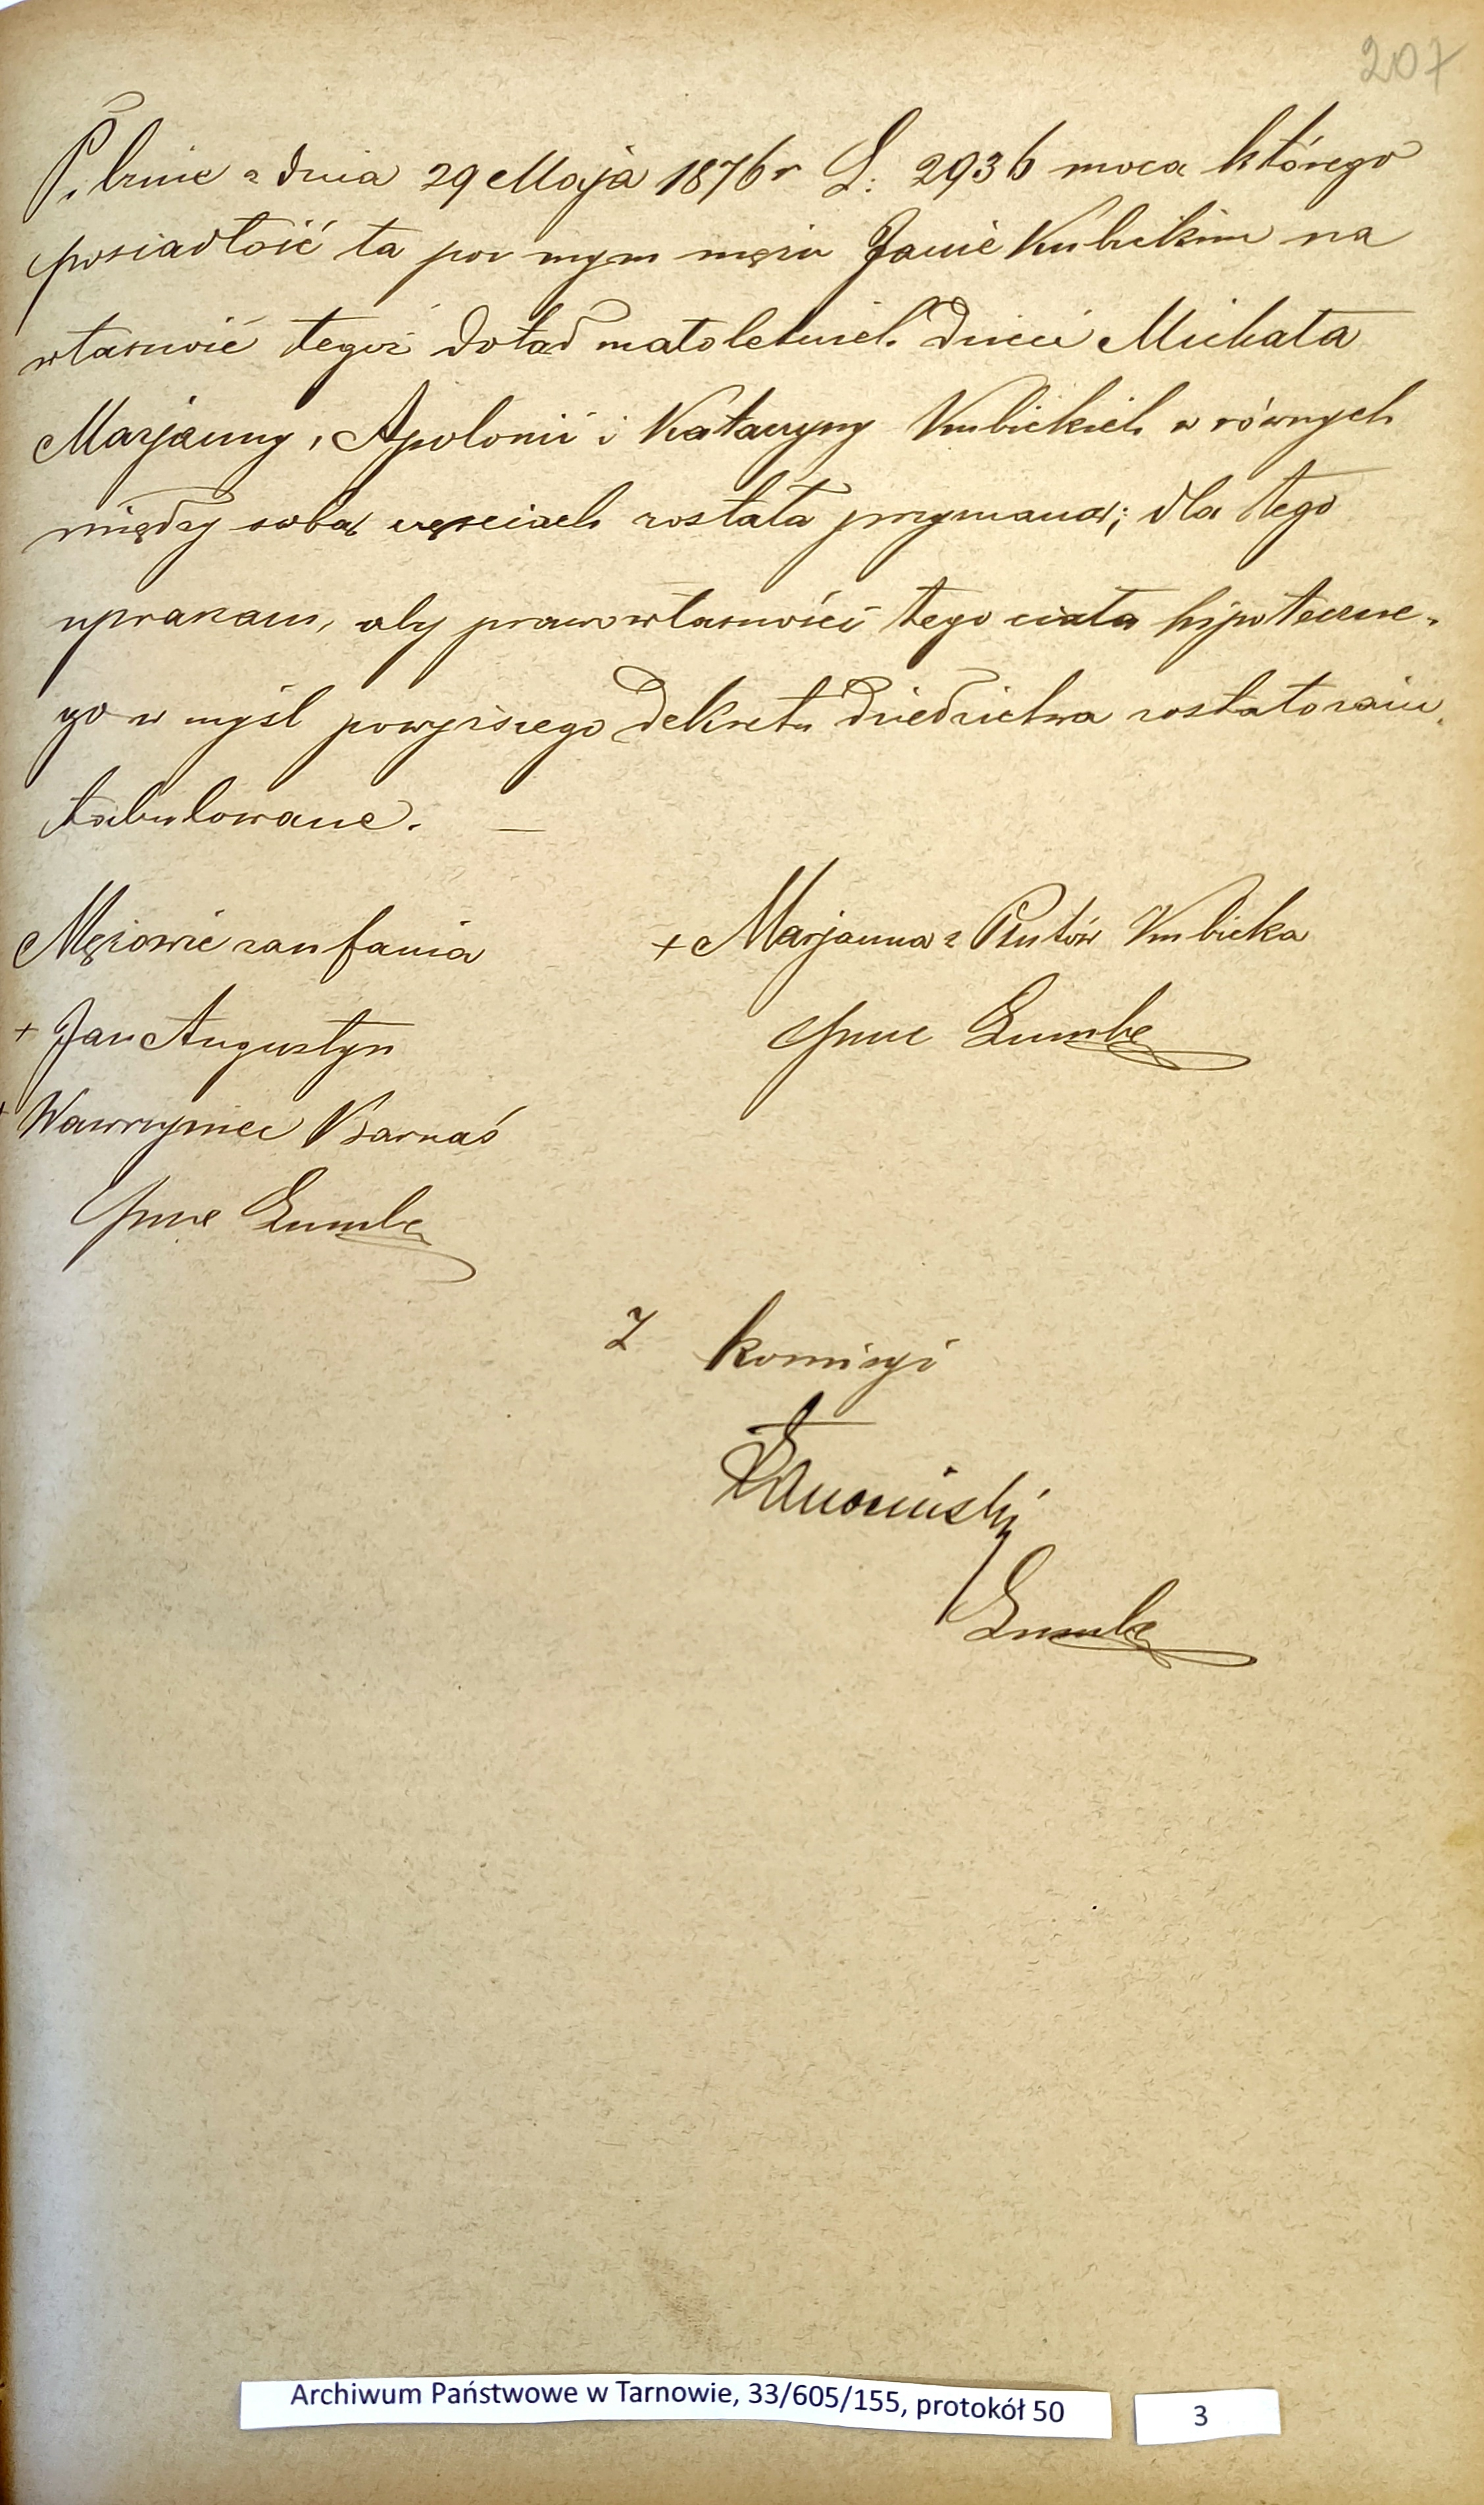 207
Pilznie z dnia 29 Maja 1876 r L: 2936 moca którego
posiadłość ta po mym mężu Janie Kubickim na
własność tegoż dotąd małoletnich dzieci Michała
Marjanny, Apolonii i Katarzyny Kubickich w równych
między sobą częściach została przyznaną; dla tego
upraszam, aby prawo własności tego ciała hipoteczne-
go w myśl powyższego dekretu dziedzictwa zostało zain-
tabulowane. —
Mężowie zaufania
+ Marjanna z Kubicka
+ Jan Augustyn
Lumbe
+ Wawrzyniec Barnaś
Lumbe
Z komisyi
Lumbe
Archiwum Państwowe w Tarnowie, 33/605/155, protokół 50
3